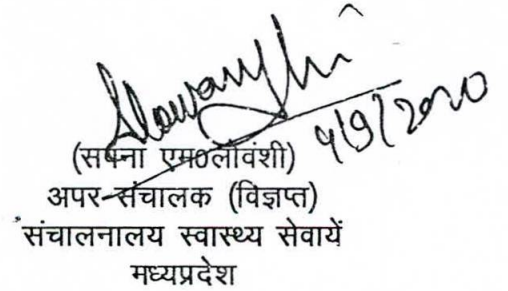 9/9/2020
(सपना एम0लोवंशी)
अपर संचालक (विज्ञप्त)
संचालनालय स्वास्थ्य सेवायें
मध्यप्रदेश